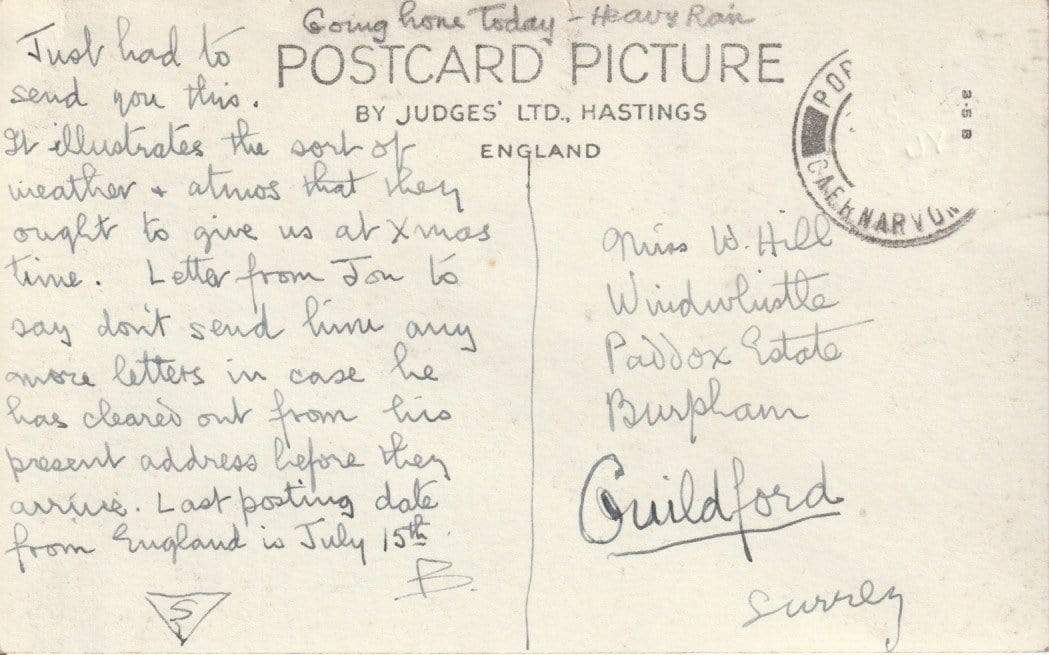 Going home Today - Heavy Rain
POSTCARD PICTURE
BY JUDGES' LTD., HASTINGS
ENGLAND
Just had to
send you this.
It illustrates the sort of
weather + atmos that they
ought to give us at Xmas
time. Letter from Jon to
say don't send him any
more letters in case he
has cleared out from his
present address before they
arrive. Last posting date
from England is July 15th.
B.
S
POR
CAERNARVON
JY
Miss W. Hill
Windwhistle
Paddox Estate
Burpham
Guildford
Surrey